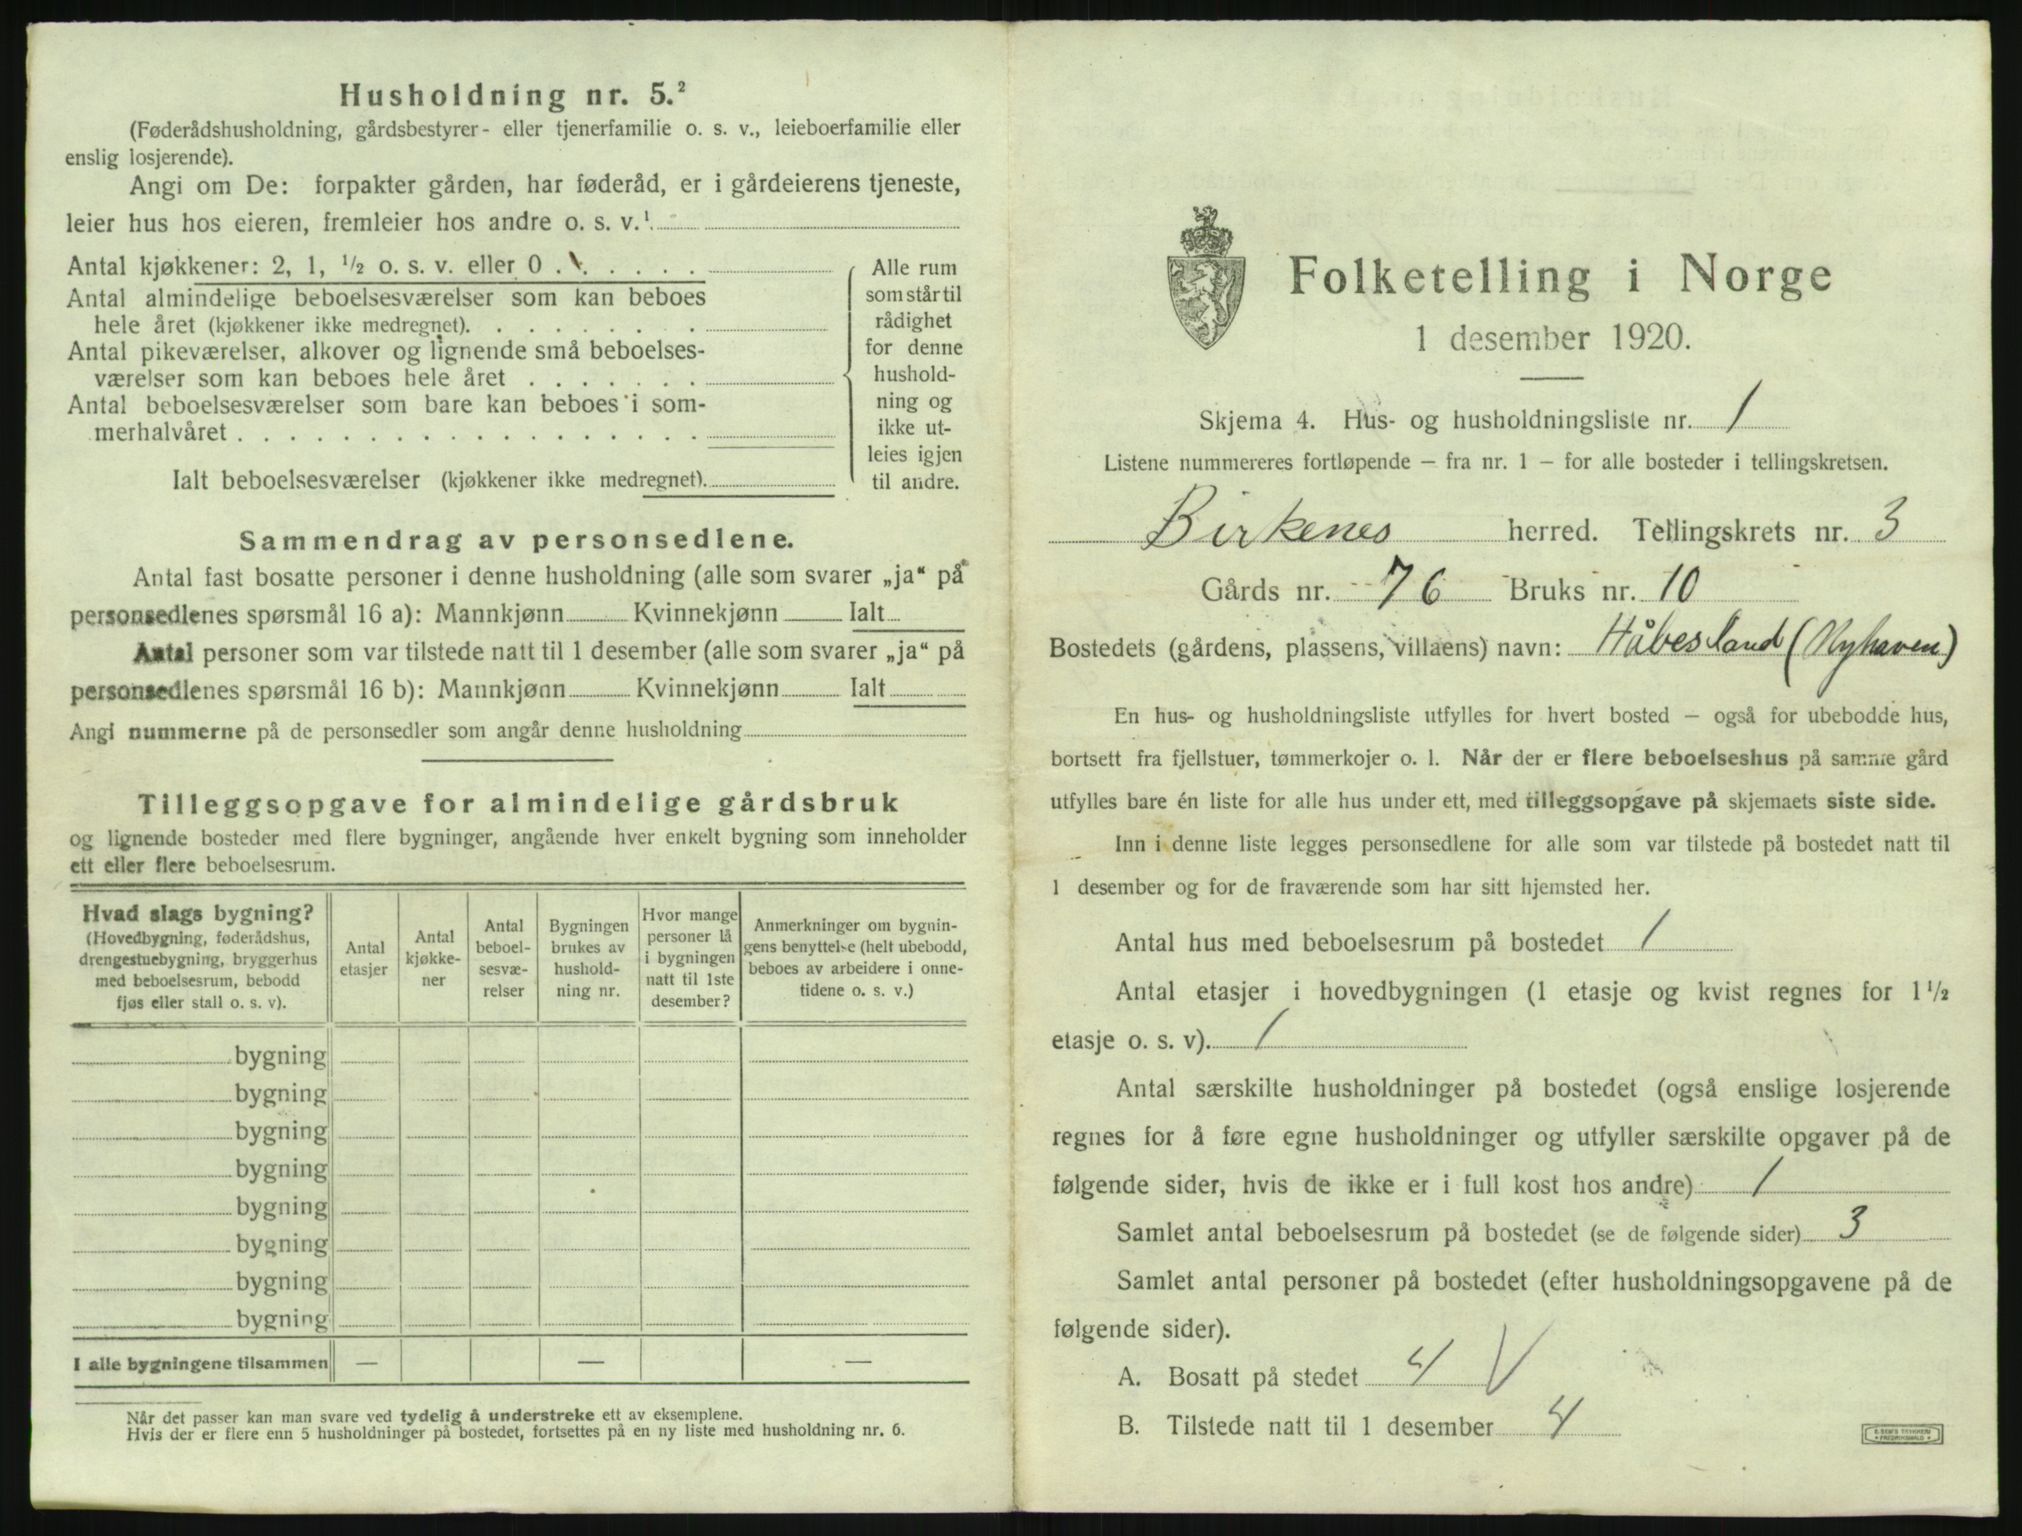 Husholdning nr. 5.²
(Føderådshusholdning, gårdsbestyrer- eller tjenerfamilie o. s. v., leieboerfamilie eller
enslig losjerende).
Angi om De: forpakter gården, har føderåd, er i gårdeierens tjeneste,
leier hus hos eieren, fremleier hos andre o. s. v.¹
Antal kjøkkener: 2, 1, ½ o. s. v. eller 0 . . . . . .
Antal almindelige beboelsesværelser som kan beboes
hele året (kjøkkener ikke medregnet). . . . . . . .
Antal pikeværelser, alkover og lignende små beboelses-
værelser som kan beboes hele året . . . . . . .
Antal beboelsesværelser som bare kan beboes i som-
merhalvåret . . . . . . . . . . . . . . . . . .
Ialt beboelsesværelser (kjøkkener ikke medregnet).
Alle rum
som står til
rådighet
for denne
hushold-
ning og
ikke ut-
leies igjen
til andre.
Sammendrag av personsedlene.
Antal fast bosatte personer i denne husholdning (alle som svarer „ja“ på
personsedlenes spørsmål 16 a): Mannkjønn Kvinnekjønn Ialt
Antal personer som var tilstede natt til 1 desember (alle som svarer „ja“ på
personsedlenes spørsmål 16 b): Mannkjønn Kvinnekjønn Ialt
Angi nummerne på de personsedler som angår denne husholdning
Tilleggsopgave for almindelige gårdsbruk
og lignende bosteder med flere bygninger, angående hver enkelt bygning som inneholder
ett eller flere beboelsesrum.
Hvad slags bygning?
(Hovedbygning, føderådshus,
drengestuebygning, bryggerhus
med beboelsesrum, bebodd
fjøs eller stall o. s. v).
Antal
etasjer
Antal
kjøkke-
ner
Antal
beboel-
sesvæ-
relser
Bygningen
brukes av
hushold-
ning nr.
Hvor mange
personer lå
i bygningen
natt til 1ste
desember?
Anmerkninger om bygnin-
gens benyttelse (helt ubebodd,
beboes av arbeidere i onne-
tidene o. s. v.)
bygning
bygning
bygning
bygning
bygning
bygning
bygning
bygning
I alle bygningene tilsammen — — —
Når det passer kan man svare ved tydelig å understreke ett av eksemplene.
Hvis der er flere enn 5 husholdninger på bostedet, fortsettes på en ny liste med husholdning nr. 6.
Folketelling i Norge
1 desember 1920.
Skjema 4. Hus- og husholdningsliste nr. 1
Listene nummereres fortløpende — fra nr. 1 — for alle bosteder i tellingskretsen.
Birkenes herred. Tellingskrets nr. 3
Gårds nr. 76 Bruks nr. 10
Bostedets (gårdens, plassens, villaens) navn: Håbesland (Nyhaven)
En hus- og husholdningsliste utfylles for hvert bosted — også for ubebodde hus,
bortsett fra fjellstuer, tømmerkojer o. l. Når der er flere beboelseshus på samme gård
utfylles bare én liste for alle hus under ett, med tilleggsopgave på skjemaets siste side.
Inn i denne liste legges personsedlene for alle som var tilstede på bostedet natt til
1 desember og for de fraværende som har sitt hjemsted her.
Antal hus med beboelsesrum på bostedet 1
Antal etasjer i hovedbygningen (1 etasje og kvist regnes for 1½
etasje o. s. v). 1
Antal særskilte husholdninger på bostedet (også enslige losjerende
regnes for å føre egne husholdninger og utfyller særskilte opgaver på de
følgende sider, hvis de ikke er i full kost hos andre) 1
Samlet antal beboelsesrum på bostedet (se de følgende sider) 3
Samlet antal personer på bostedet (efter husholdningsopgavene på de
følgende sider).
A. Bosatt på stedet 4 V
B. Tilstede natt til 1 desember 4